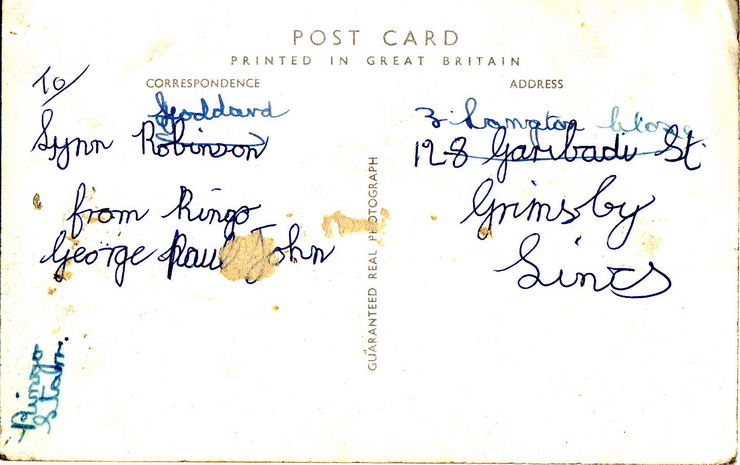 POST CARD
PRINTED IN GREAT BRITAIN
CORRESPONDENCE
To
Goddard
Lynn Robinson
from Ringo
George Paul John
Ringo
Starr.
GUARANTEED REAL PHOTOGRAPH
ADDRESS
3 Langton Close
128 Garibadi St.
Grimsby
Lincs